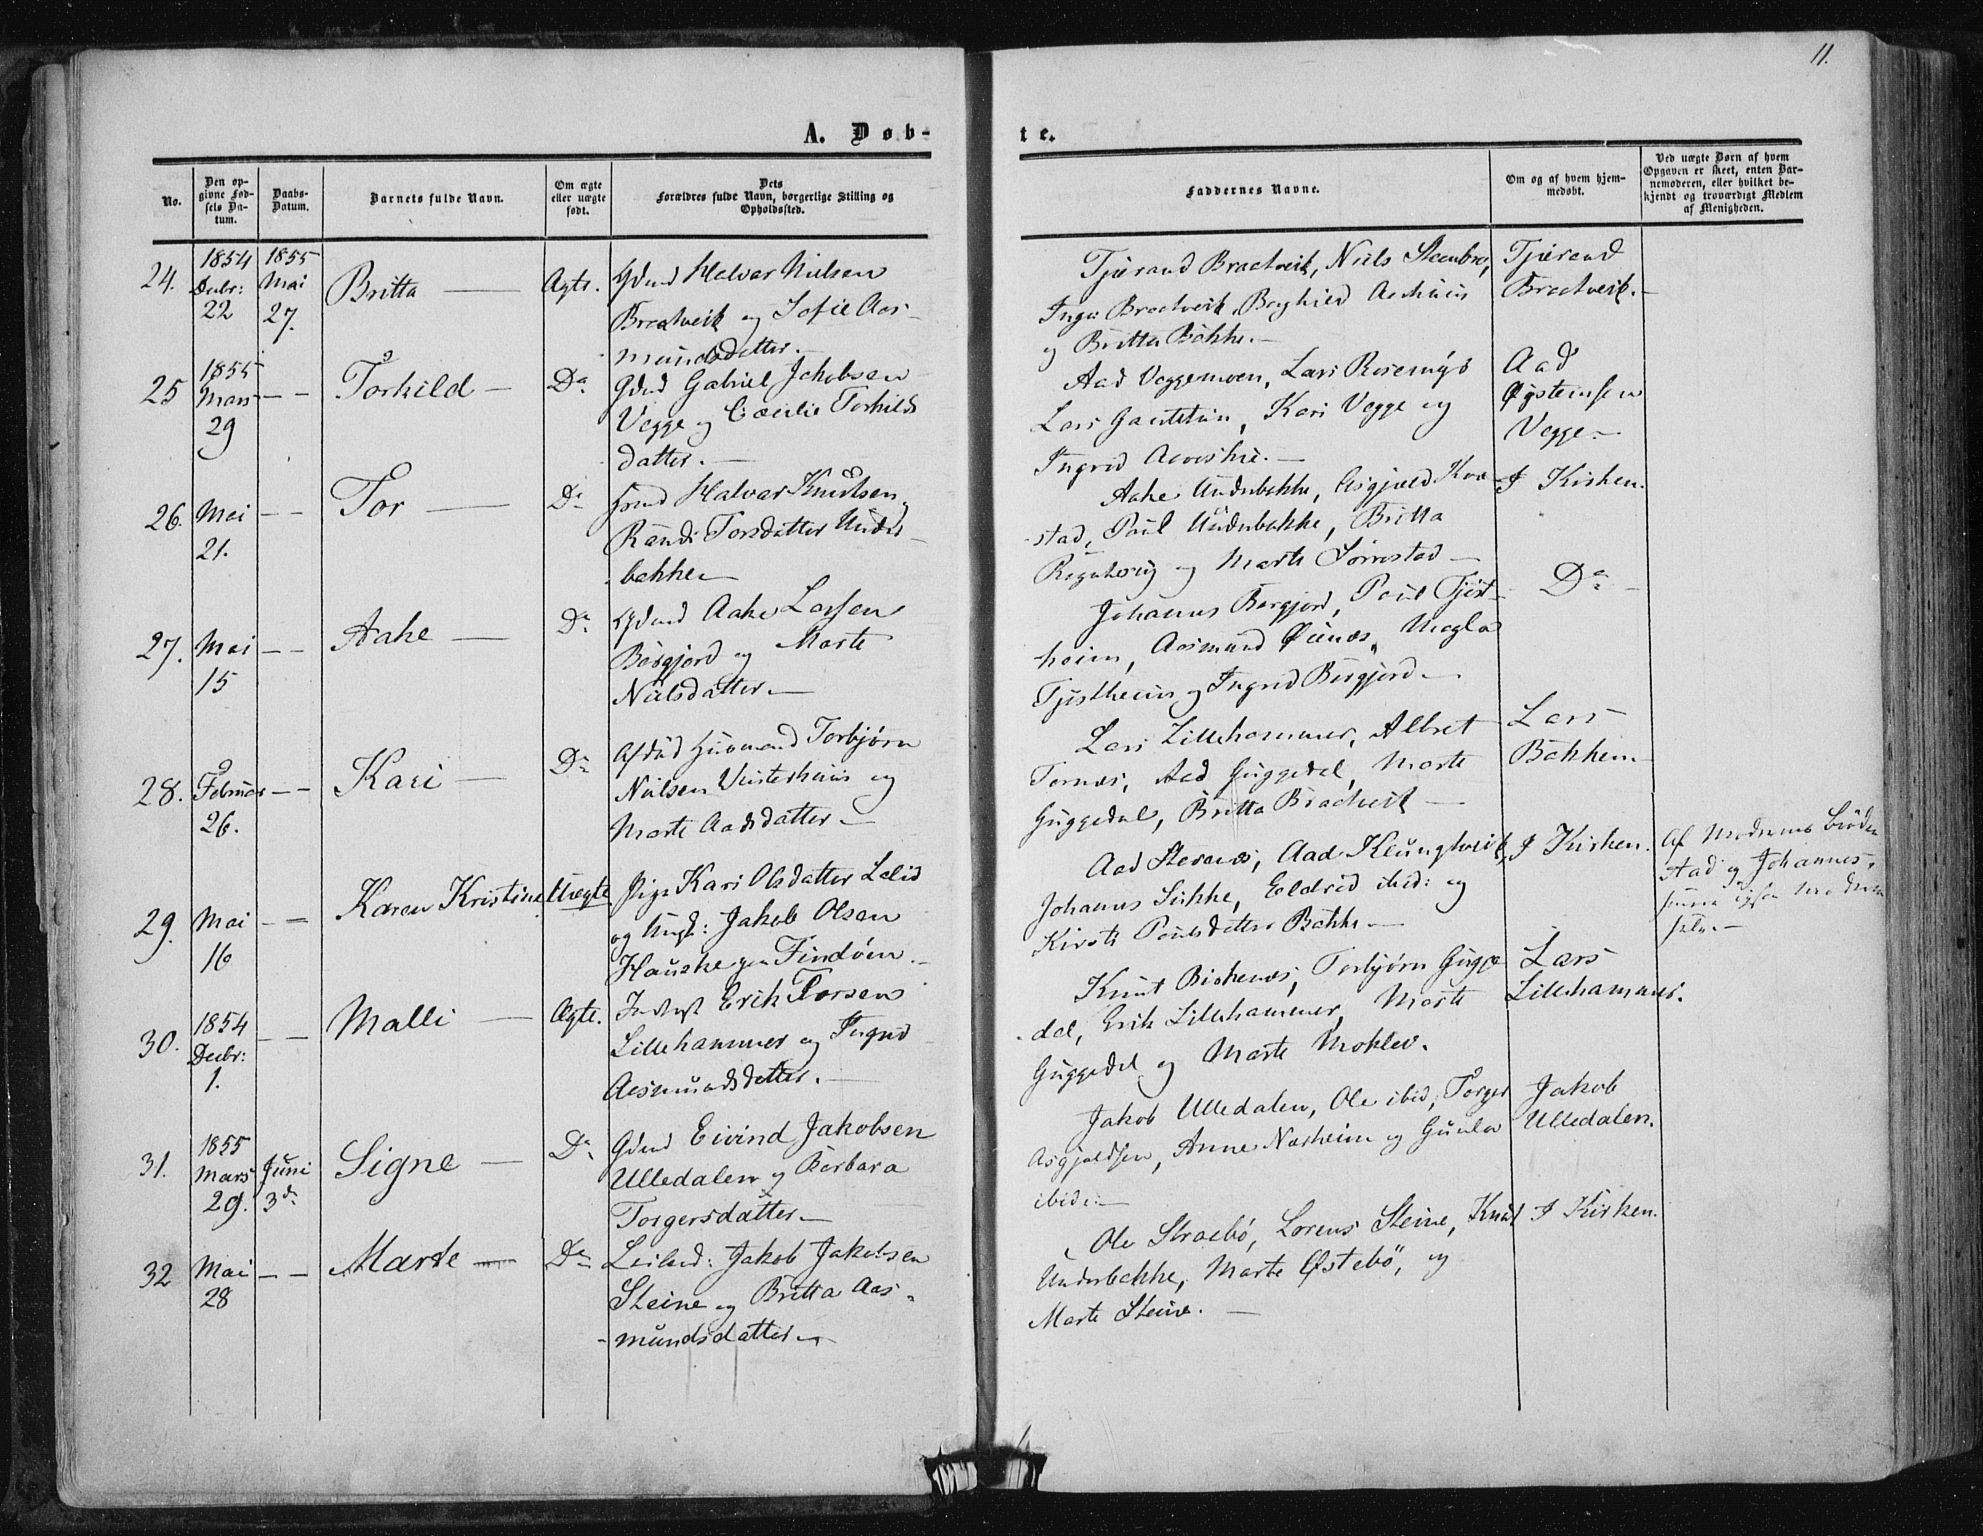 11.
A. Døb-
te.
No.
Den op-
givne Fød-
sels Da-
tum.
Daabs-
Datum.
Barnets fulde Navn.
Om ægte
eller uægte
født.
Dets
Forældres fulde Navn, borgerlige Stilling og
Opholdssted.
Faddernes Navne.
Om og af hvem hjem-
medøbt.
Ved uægte Børn af hvem
Opgaven er skeet, enten Bar-
nemoderen, eller hvilket be-
kjendt og troværdigt Medlem
af Menigheden.
24.
1854
Decbr:
22
1855
Mai
27.
Britta
Ægte.
Gdmd Halvar Nielsen
Bratveit og Sofie Aas-
mundsdatter.
Tjerand Bratveit, Niels Steenbro,
Inga Bratveit, Borghild
og Britta Bakke.
Tjerand
Bratveit.
25
1855
Mars
29
Torkild
Do
Gdmd Gabriel Jakobsen
Vegge og Cæcilie Torkilds
datter.
Aad Veggemoen, Lars
Lars Gautetun, Kari Vegge og
Ingrid
Aad
Øysteinsen
Vegge.
26.
Mai
21.
Tor
Do
Halvar Knudsen,
Randi Torsdatter Under-
bakke
Aake Underbakke, Asgjæld
stad, Paul Underbakke, Britta
og Marte Sørrestad
I Kirken.
27.
Mai
15
Aake
Do
Gdmd Aake Larsen
Bergjord og Marte
Nielsdatter.
Johannes Bergjord, Paul Tjøst-
heim, Aasmund Øinæs, Magla
Tjøstheim og Ingrid Bergjord.
Do
28.
Februar
26.
Kari
Do
Afdød Huusmand Torbjørn
Nielsen Vinterhuus og
Marte Aadsdatter
Lars Lillehammer, Albret
Tornæs, Aad Guggedal, Marte
Guggedal, Britta Bratveit
Lars
Bakken
29.
Mai
16
Karen Kristine
Uægte
Pige Kari Olsdatter Lalid
og Ungk: Jakob Olsen
Hauske paa Findøen.
Aad Steranæs, Aad Klungtveit,
Johannes Sukke, Eldrid ibid: og
Kirsti Paulsdatter Bakke
I Kirken.
Af Moderens Brødre
Aad og Johannes,
Moderen
selv.
30.
1854
Decbr:
1.
Malli
Ægte.
Inderst Erik Torsen
Lillehammer og Ingrid
Aasmundsdatter.
Knut Birkenæs, Torbjørn Gugge
dal, Erik Lillehammer, Marte
Guggedal og Marte Mokleiv.
Lars
Lillehammer.
31.
1855
Mars
29.
Juni
3de
Signe
Do
Gdmd Eivind Jakobsen
Ulledalen og Barbara
Torgersdatter
Jakob Ulledalen, Ole ibid, Torger
Asgjeldsen, Anne Nærheim og Gunla
ibid:
Jakob
Ulledalen.
32
Mai
28
Marte
Do
Leilænd: Jakob Jakobsen
Steine og Britta Aas-
mundsdatter
Ole Stræbø, Lorens Steine, Knut
Underbakke, Marte Østebø, og
Marte Steine.
I Kirken.